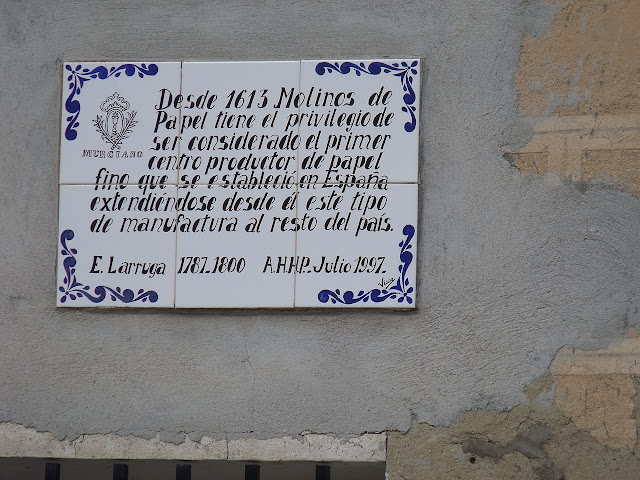 Desde 1613 Molinos de
Papel tiene el privilegio de
ser considerado el primer
centro productor de papel
fino que se estableció en España
extendiéndose desde él este tipo
de manufactura al resto del país.
MURCIANO
E. Larruga 1787-1800 A.H.P. Julio 1997-